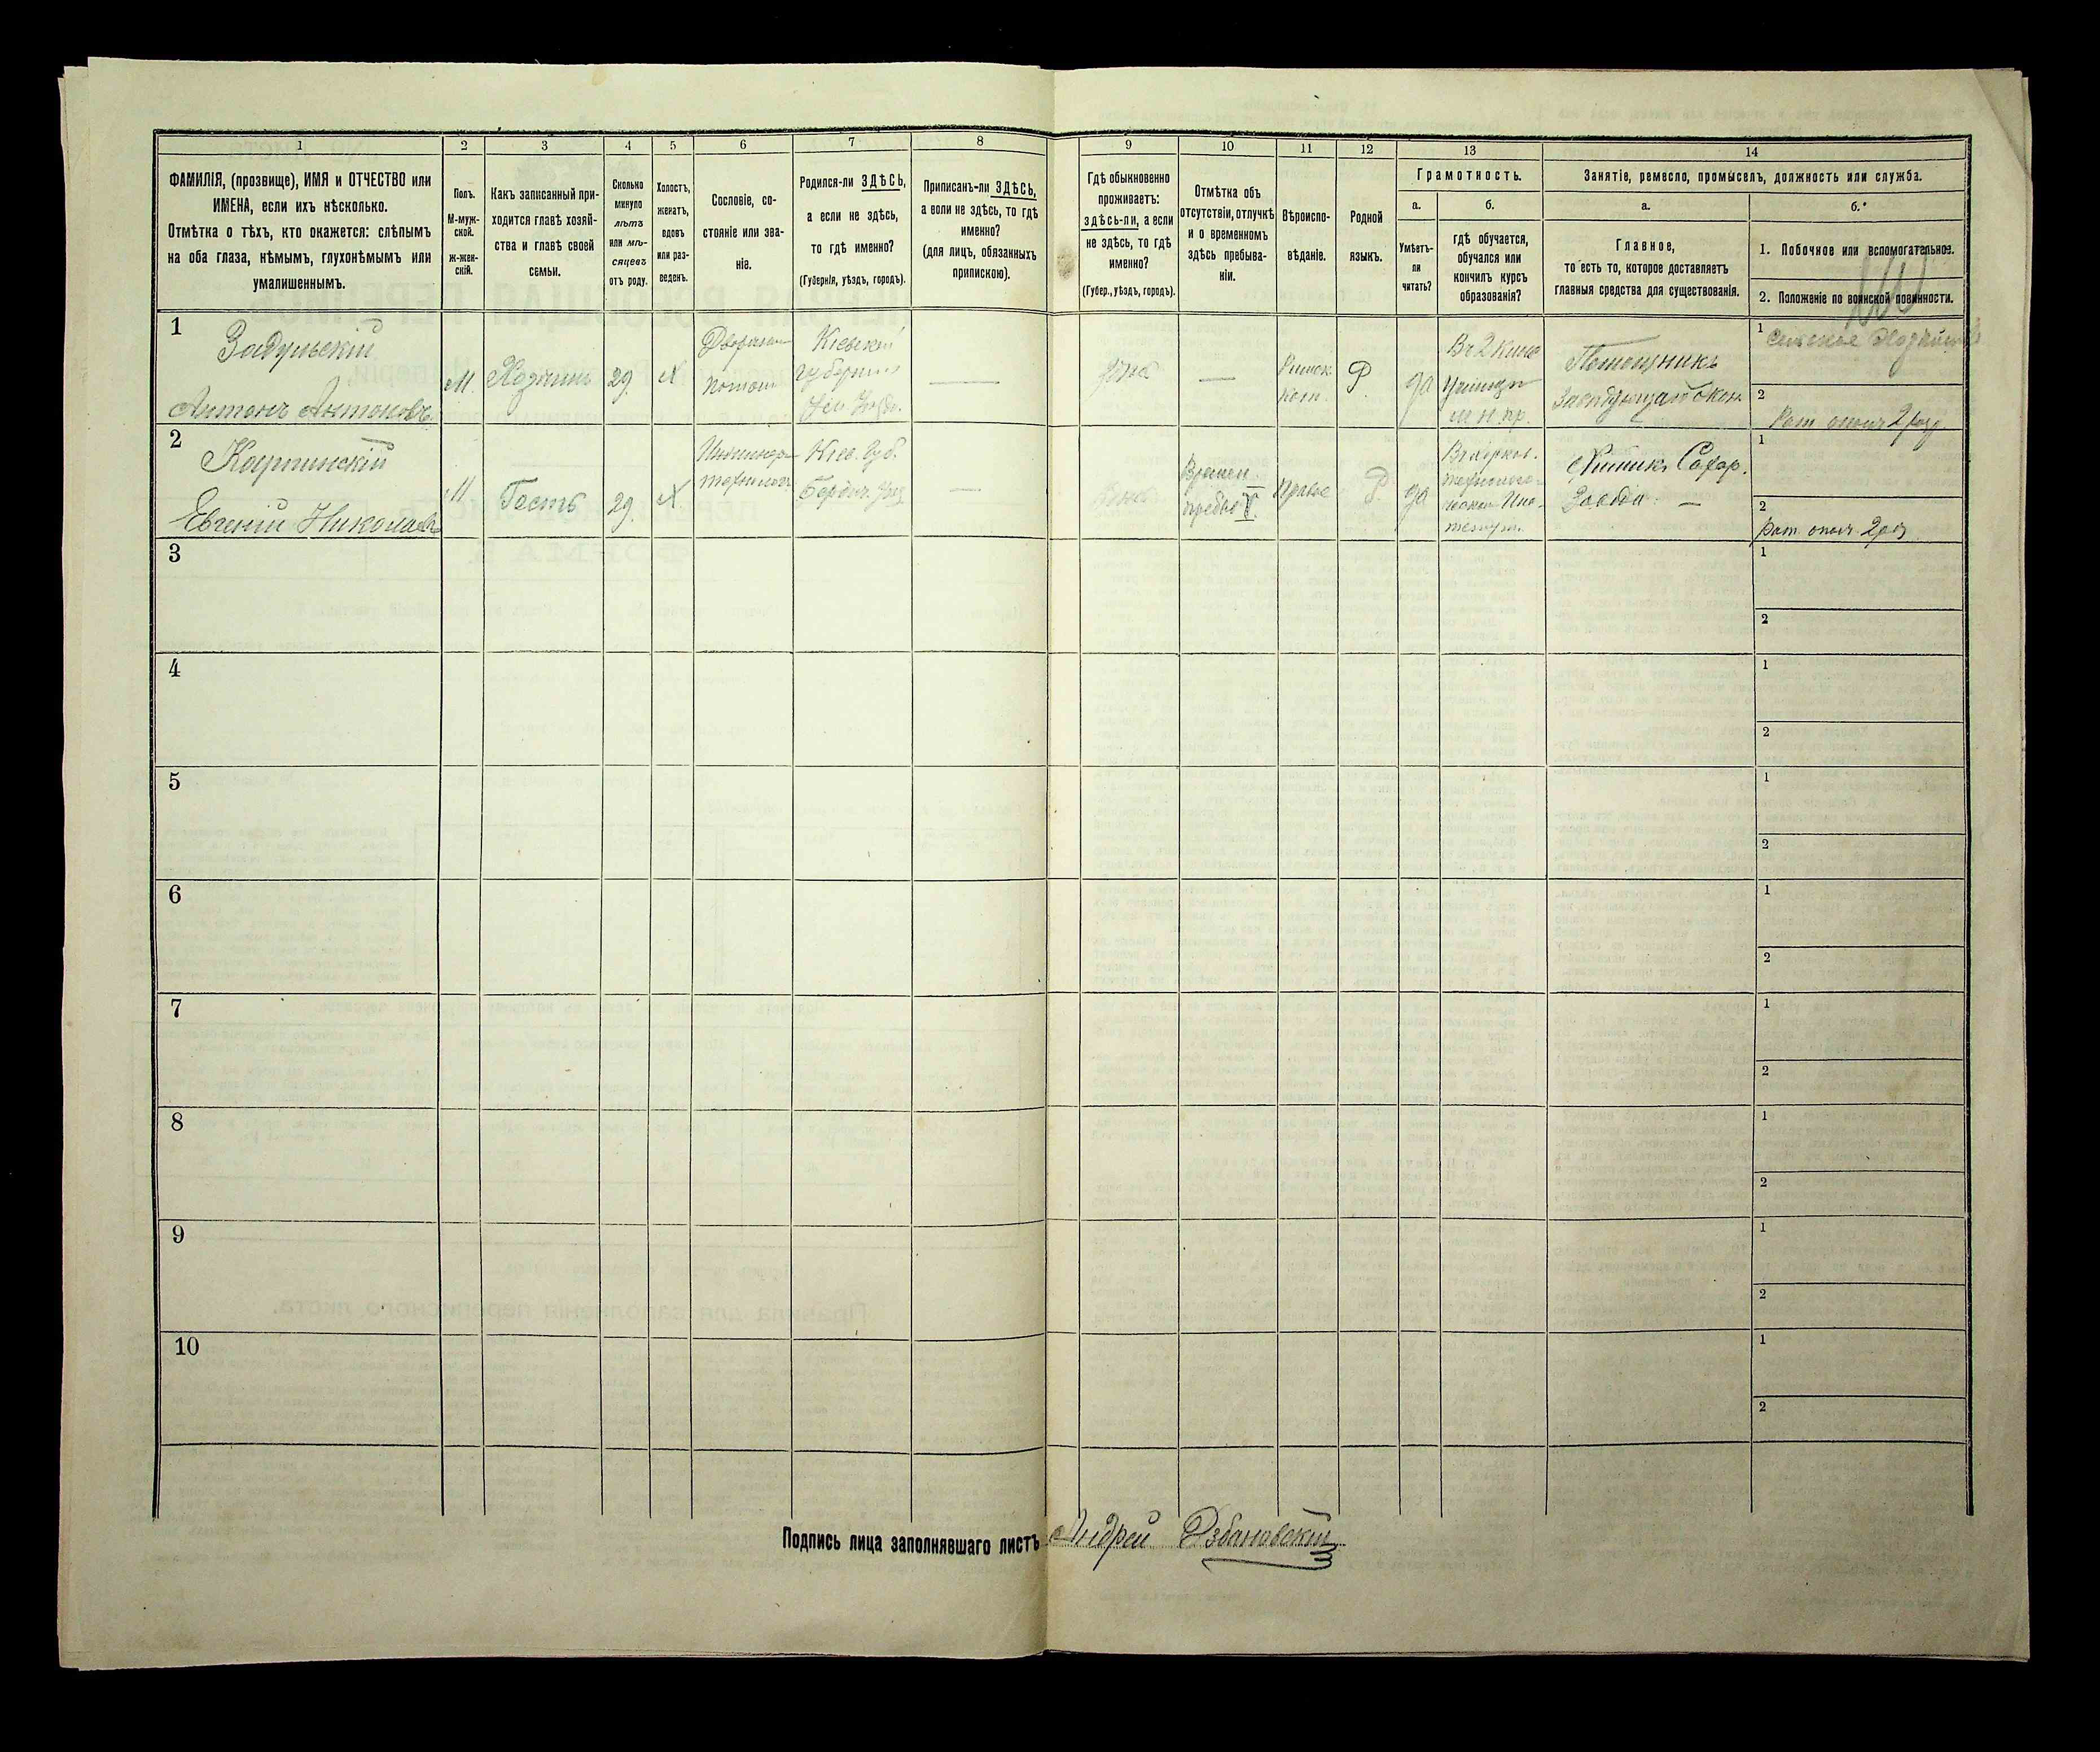 1
2
3
4
5
6
7
8
9
10
11
12
13
14
ФАМИЛІЯ, (прозвище), ИМЯ и ОТЧЕСТВО или
ИМЕНА, если ихъ нѣсколько.
Отмѣтка о тѣхъ, кто окажется: слѣпымъ
на оба глаза, нѣмымъ, глухонѣмымъ или
умалишеннымъ.
Полъ.
М-муж-
ской.
ж-жен-
скій.
Какъ записанный при-
ходится главѣ хозяй-
ства и главѣ своей
семьи.
Сколько
минуло
лѣтъ
или мѣ-
сяцевъ
отъ роду.
Холостъ,
женатъ,
вдовъ
или раз-
веденъ.
Сословіе, со-
стояніе или зва-
ніе.
Родился-ли ЗДѢСЬ,
а если не здѣсь,
то гдѣ именно?
(Губернія, уѣздъ, городъ).
Приписанъ-ли ЗДѢСЬ,
а если не здѣсь, то гдѣ
именно?
(для лицъ, обязанныхъ
припискою).
Гдѣ обыкновенно
проживаетъ:
здѣсь-ли, а если
не здѣсь, то гдѣ
именно?
(Губер., уѣздъ, городъ).
Отмѣтка объ
отсутствіи, отлучкѣ
и о временномъ
здѣсь пребыва-
ніи.
Вѣроиспо-
вѣданіе.
Родной
языкъ.
Грамотность.
а.
Умѣетъ-
ли
читать?
б.
гдѣ обучается,
обучался или
кончилъ курсъ
образованія?
Занятіе, ремесло, промыселъ, должность или служба.
а.
Главное,
то есть то, которое доставляетъ
главныя средства для существованія.
б.
1. Побочное или вспомогательное.
2. Положеніе по воинской повинности.
1
Задульскій
Антонъ Антоновъ
М.
Хозяинъ
29.
Х
Дворянинъ
потом
Кіевской
губерніи
—
—
Римск
кат.
Р.
да
Въ 2 класс
училищ
м. н. пр.
Помощникъ
1
Сельское Хозяйство
2
Рат. ополч 2 разр.
2
Карпинскій
Евгеній Николаев
М.
Гость
29.
Х.
Инженеръ
технологъ
Кіев. Губ.
Бердич. Уѣз
—
Времен.
пребыв
Правос
Р.
да
Въ Харьков.
технологи-
ческом Инс-
титут.
Химикъ Сахар.
Завода —
1
2
Рат. ополч. 2 раз
3
1
2
4
1
2
5
1
2
6
1
2
7
1
2
8
1
2
9
1
2
10
1
2
Подпись лица заполнявшаго листъ Андрей Дзбановскій